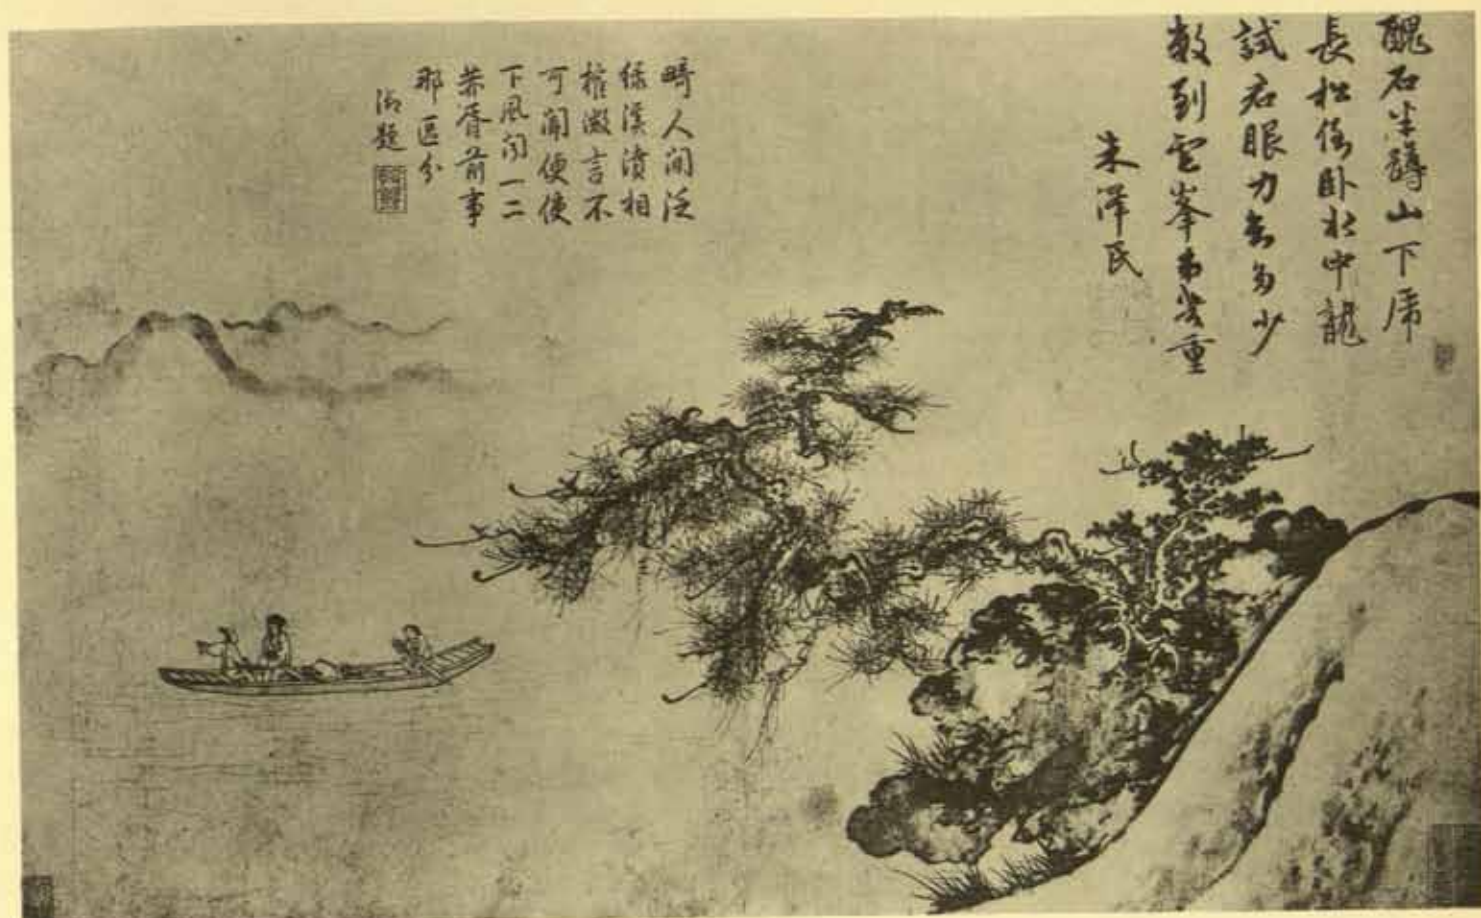 醜石半蹲山下虎
長松倒卧水中龍
試君眼力知多少
數到雲峯第幾重
朱澤民
畸人閒泛
綠溪濆相
榷微言不
可聞便使
下風聞一二
華胥前事
那區分
御題